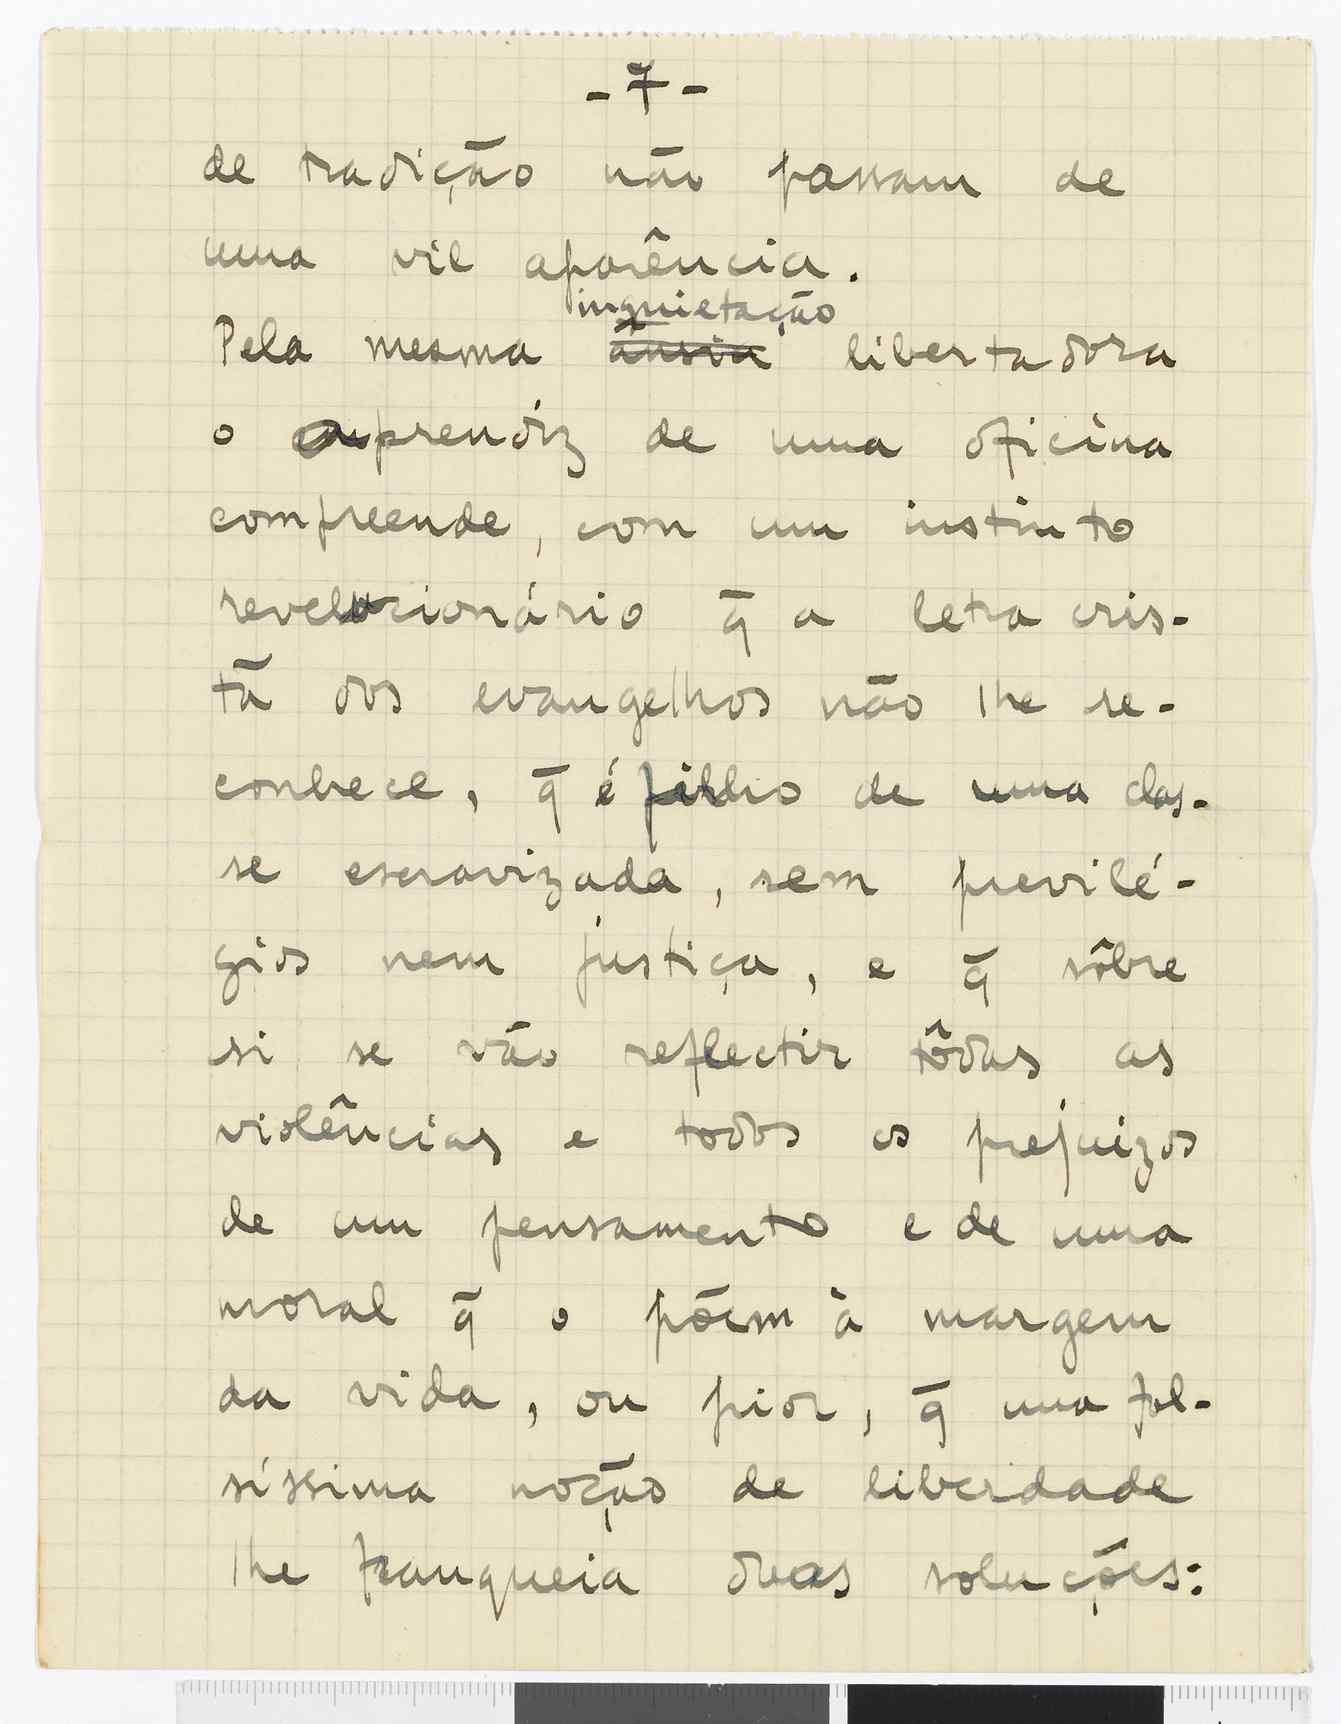 - 7 -
de tradição não passam de
uma vil aparência.
inquietação
Pela mesma ânsia libertadora
o aprendiz de uma oficina
compreende, com um instinto
revelucionário q̄ a letra cris-
tã dos evangelhos não lhe re-
conhece, q̄ é filho de uma clas-
se escravizada, sem previlé-
gios nem justiça, e q̄ sôbre
si se vão reflectir tôdas as
violências e todos os prejuizos
de um pensamento e de uma
moral q̄ o põem à margem
da vida, ou pior, q̄ uma fal-
síssima noção de liberdade
lhe franqueia duas soluções: